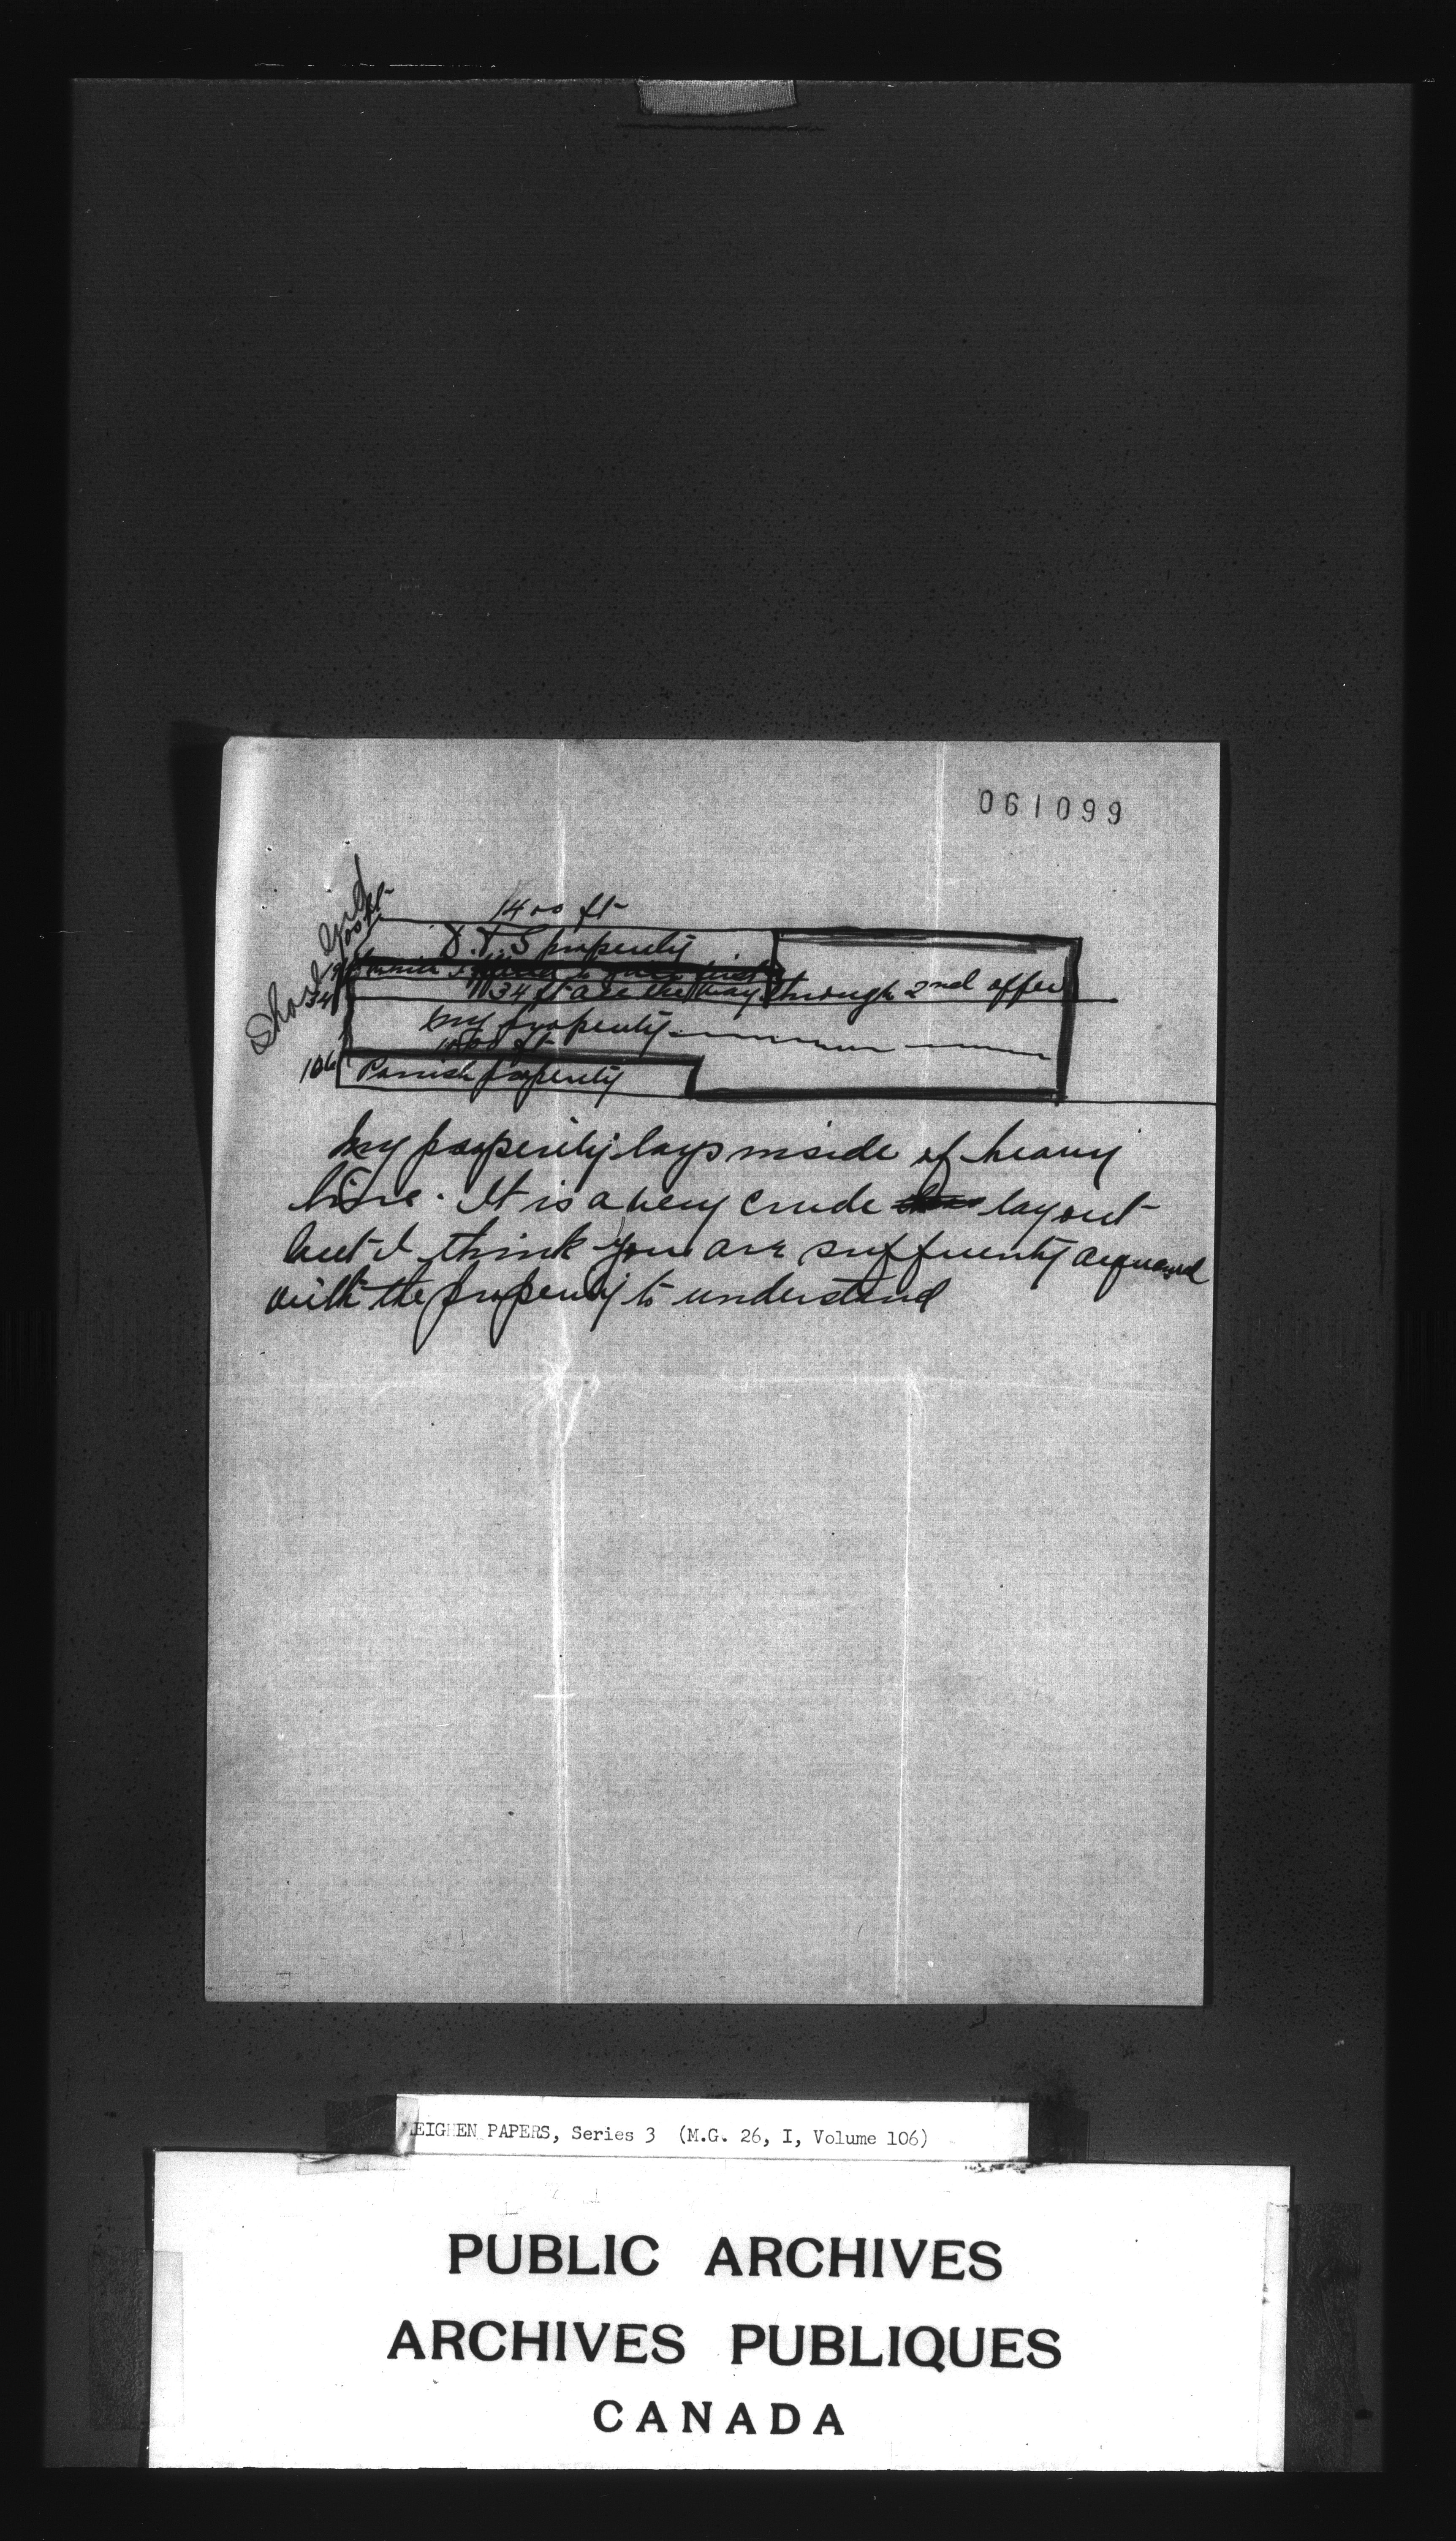 061099
1400 ft
100 ft
D.T.S property
34
34 ft all the way through 2nd offer
my property
1000 ft
106
Parrish property
My property lays inside of heavy
line. It is a very crude layout
but I think you are suffuenty
with the property to understand
EIGHEN PAPERS, Series 3 (M.G. 26, I, Volume 106)
PUBLIC ARCHIVES
ARCHIVES PUBLIQUES
CANADA